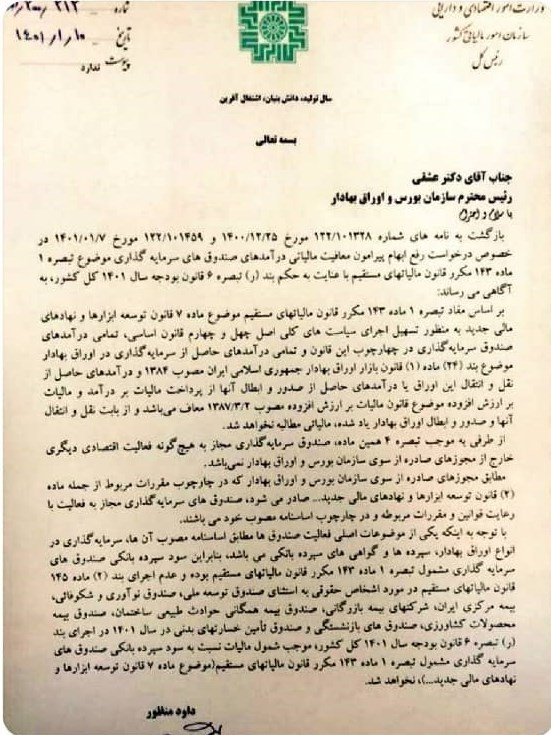 وزارت امور اقتصادی و دارایی
سازمان امور مالیاتی کشور
رئیس کل
شماره ۲۱۲
تاریخ ۱۴۰۱/۱/۱۰
پیوست ندارد
سال تولید، دانش بنیان، اشتغال آفرین
بسمه تعالی
جناب آقای دکتر عشقی
رئیس محترم سازمان بورس و اوراق بهادار
با سلام و احترام
بازگشت به نامه های شماره ۱۲۲/۱۰۱۳۲۸ مورخ ۱۴۰۰/۱۲/۲۵ و ۱۲۲/۱۰۱۴۵۹ مورخ ۱۴۰۱/۰۱/۷ در
خصوص درخواست رفع ابهام پیرامون معافیت مالیاتی درآمدهای صندوق های سرمایه گذاری موضوع تبصره ۱
ماده ۱۴۳ مکرر قانون مالیاتهای مستقیم با عنایت به حکم بند (ر) تبصره ۶ قانون بودجه سال ۱۴۰۱ کل کشور، به
آگاهی می رساند:
بر اساس مفاد تبصره ۱ ماده ۱۴۳ مکرر قانون مالیاتهای مستقیم موضوع ماده ۷ قانون توسعه ابزارها و نهادهای
مالی جدید به منظور تسهیل اجرای سیاست های کلی اصل چهل و چهارم قانون اساسی، تمامی درآمدهای
صندوق سرمایه‌گذاری در چهارچوب این قانون و تمامی درآمدهای حاصل از سرمایه‌گذاری در اوراق بهادار
موضوع بند (۲۴) ماده (۱) قانون بازار اوراق بهادار جمهوری اسلامی ایران مصوب ۱۳۸۴ و درآمدهای حاصل از
نقل و انتقال این اوراق یا درآمدهای حاصل از صدور و ابطال آنها از پرداخت مالیات بر درآمد و مالیات
بر ارزش افزوده موضوع قانون مالیات بر ارزش افزوده مصوب ۱۳۸۷/۳/۲ معاف می‌باشد و از بابت نقل و انتقال
آنها و صدور و ابطال اوراق بهادار یاد شده، مالیاتی مطالبه نخواهد شد.
از طرفی به موجب تبصره ۴ همین ماده، صندوق سرمایه‌گذاری مجاز به هیچ‌گونه فعالیت اقتصادی دیگری
خارج از مجوزهای صادره از سوی سازمان بورس و اوراق بهادار نمی‌باشد.
مطابق مجوزهای صادره از سوی سازمان بورس و اوراق بهادار که در چارچوب مقررات مربوط از جمله ماده
(۲) قانون توسعه ابزارها و نهادهای مالی جدید... صادر می شود، صندوق های سرمایه گذاری مجاز به فعالیت با
رعایت قوانین و مقررات مربوطه و در چارچوب اساسنامه مصوب خود می باشند.
با توجه به اینکه یکی از موضوعات اصلی فعالیت صندوق ها مطابق اساسنامه مصوب آن ها، سرمایه‌گذاری در
انواع اوراق بهادار، سپرده ها و گواهی های سپرده بانکی می باشد، بنابراین سود سپرده بانکی صندوق های
سرمایه گذاری مشمول تبصره ۱ ماده ۱۴۳ مکرر قانون مالیاتهای مستقیم بوده و عدم اجرای بند (۲) ماده ۱۴۵
قانون مالیاتهای مستقیم در مورد اشخاص حقوقی به استثنای صندوق توسعه ملی، صندوق نوآوری و شکوفائی،
بیمه مرکزی ایران، شرکتهای بیمه بازرگانی، صندوق بیمه همگانی حوادث طبیعی ساختمان، صندوق بیمه
محصولات کشاورزی، صندوق های بازنشستگی و صندوق تأمین خسارتهای بدنی در سال ۱۴۰۱ در اجرای بند
(ر) تبصره ۶ قانون بودجه سال ۱۴۰۱ کل کشور، موجب شمول مالیات نسبت به سود سپرده بانکی صندوق های
سرمایه گذاری مشمول تبصره ۱ ماده ۱۴۳ مکرر قانون مالیاتهای مستقیم(موضوع ماده ۷ قانون توسعه ابزارها و
نهادهای مالی جدید...)، نخواهد شد.
داود منظور